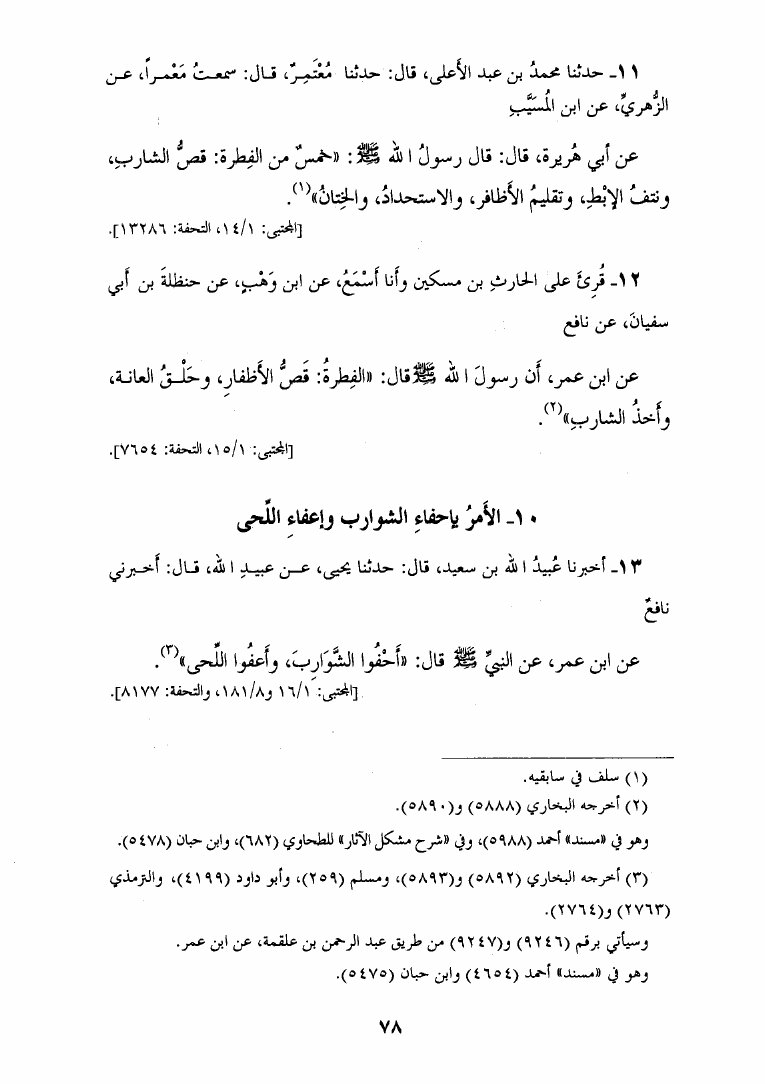 ١١ـ حدثنا محمدُ بن عبد الأعلى، قال: حدثنا مُعْتَمِرٌ، قـال: سمعـتُ مَعْمـراً، عـن
الزُّهريِّ، عن ابن المُسَيَّبِ
عن أبي هُريرة، قال: قال رسولُ الله ﷺ: «خمسٌ من الفِطرة: قصُّ الشاربِ،
ونتفُ الإبْطِ، وتقليمُ الأظافر، والاستحدادُ، والخِتانُ»(١).
[المجتبى: ١٤/١، التحفة: ١٣٢٨٦].
١٢ـ قُرِئَ على الحارثِ بن مسكين وأنا أَسْمَعُ، عن ابن وَهْبٍ، عن حنظلةَ بن أبي
سفيانَ، عن نافع
عن ابن عمر، أن رسولَ الله ﷺ قال: «الفِطرةُ: قَصُّ الأظفارِ، وحَلْـقُ العانـة،
وأَخذُ الشاربِ»(٢).
[المجتبى: ١٥/١، التحفة: ٧٦٥٤].
١٠ـ الأَمرُ بإحفاءِ الشوارب وإعفاءِ اللِّحى
١٣ـ أخبرنا عُبيدُ الله بن سعيد، قال: حدثنا يحيى، عـن عبيـدِ الله، قـال: أَخـبرني
نافعٌ
عن ابن عمر، عن النبيِّ ﷺ قال: «أَحْفُوا الشَّوَارِبَ، وأَعفُوا اللِّحى»(٣).
[المجتبى: ١٦/١ و١٨١/٨، والتحفة: ٨١٧٧].
(١) سلف في سابقيه.
(٢) أخرجه البخاري (٥٨٨٨) و(٥٨٩٠).
وهو في «مسند» أحمد (٥٩٨٨)، وفي «شرح مشكل الآثار» للطحاوي (٦٨٢)، وابن حبان (٥٤٧٨).
(٣) أخرجه البخاري (٥٨٩٢) و(٥٨٩٣)، ومسلم (٢٥٩)، وأبو داود (٤١٩٩)، والترمذي
(٢٧٦٣) و(٢٧٦٤).
وسيأتي برقم (٩٢٤٦) و(٩٢٤٧) من طريق عبد الرحمن بن علقمة، عن ابن عمر.
وهو في «مسند» أحمد (٤٦٥٤) وابن حبان (٥٤٧٥).
٧٨